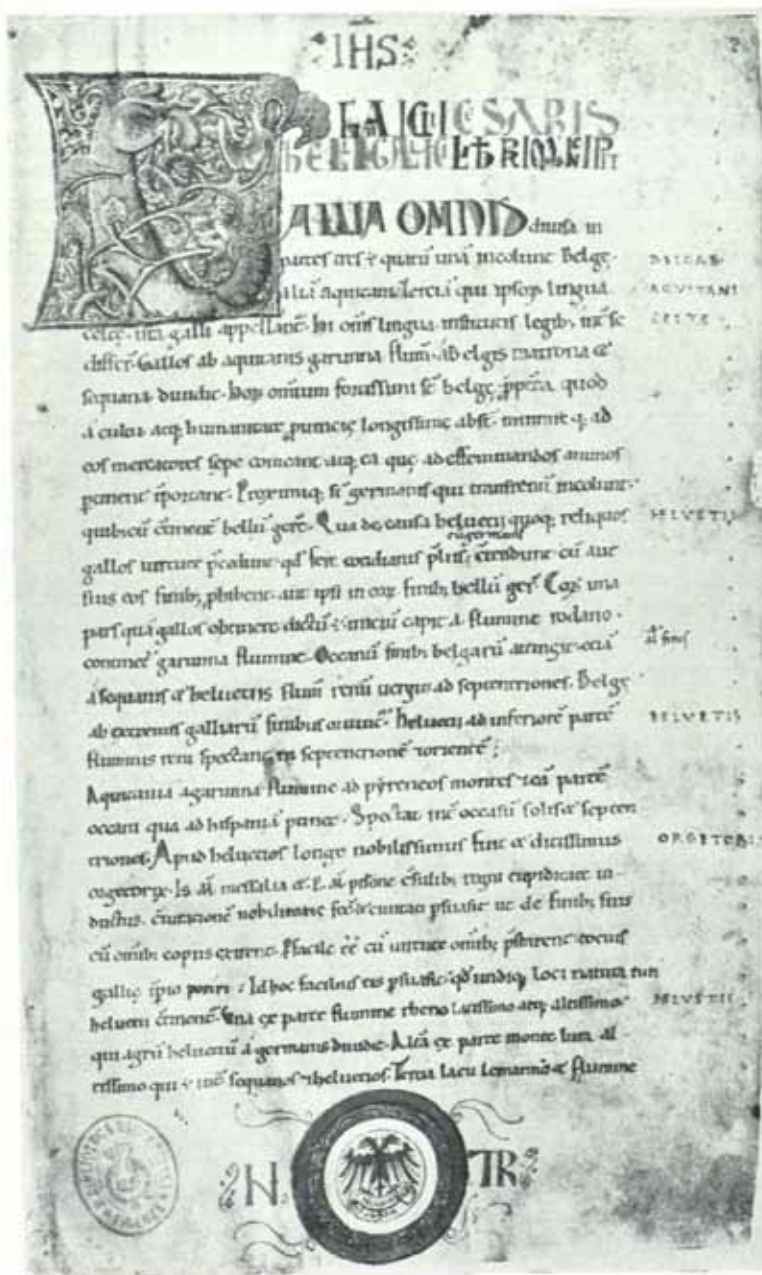 IHS
GAII CESARIS
GALLIA OMNIS diuisa in
partes tres ⁊ quarū unā incolunt Belgę.
aliā aquitani. tercia qui ipsoꝝ lingua
celtę. nr̄a galli appellant̄. hi om̄s lingua. institutis legib; int̄ se
differt̄. Gallos ab aquitanis garunna flum̄. ab elgis matrona &
sequana diuidit. hoꝝ omnium fortissimi st̄ belgę. ꝓpt̄ea quod
a cultu atq; humanitate ꝓuincię longissime abst̄. minime q; ad
eos mercatores sepe comeant atq; ea quę ad effeminandos animos
pertinent īportant. Proximiq; st̄ germanis qui transrenū incolunt.
quibuscū bellū gerē̄. Qua de causa heluetii quoq; reliquos
gallos uirtute p̄cedunt qd̄ fere cotidianis p̄liis cū germanis c̄tendunt cū aut
suis eos finib; ꝓhibent. aut ipsi in eoꝝ finib; bellū ger̄. Eoꝝ una
pars quā gallos obtinere dictū ⁊. initiū capit a flumine rodano.
continet̄ garunna flumine. Occeanū finib; belgarū attingit. etiā
a sequanis & heluetiis flum̄ renū uergit ad septentriones. Belgę
ab extremis galliarū finibus oriunt̄. pertinent ad inferiorē partē
fluminis reni spectant in septentrionē ⁊orientē;
Aquitania a garunna flumine ad pyreneos montes ⁊eā partē
oceani qua ad hispaniā pertinet. Spectat int̄ occasū solis & septen
triones. Apud heluetios longe nobilissimus fuit & ditissimus
orgetorix. Is M̄ messalla &. L. M̄ pisone c̄sulib; regni cupiditate in
ductus. c̄iurationē nobilitatis fecit & ciuitati p̄suasit ut de finib; suis
cū omib; copiis exirent. P̄facile ēē cū uirtute omnib; p̄starent. totius
gallię īpio potiri; Id hoc facilius eis p̄suasit. qd̄ undiq; loci natura
heluetii c̄tinent̄. Una ex parte flumine rheno latissimo atq; altissimo
qui agrū heluetiū a germanis diuidit. Altā ex parte monte iura al
tissimo qui ⁊ int̄ sequanos ⁊heluetios. Tercia lacu lemanno & flumine
BELGAE
AQVITANI
CELTE
HELVETII
HELVETII
ORGETORIX
HELVETII
N. TR